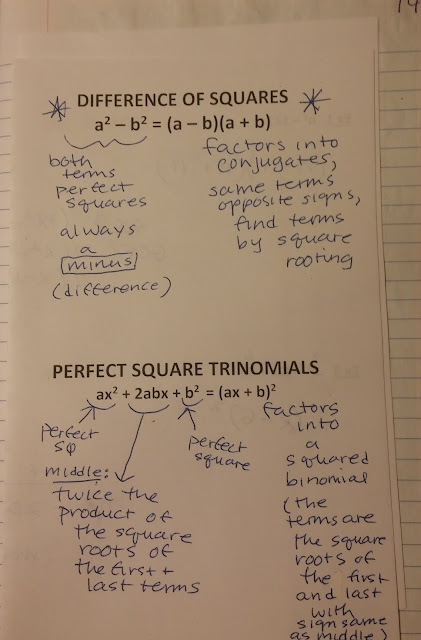 19
* DIFFERENCE OF SQUARES *
a² – b² = (a – b)(a + b)
both
terms
perfect
squares
always
a
minus
(difference)
factors into
conjugates,
same terms
opposite signs,
find terms
by square
rooting
PERFECT SQUARE TRINOMIALS
ax² + 2abx + b² = (ax + b)²
perfect
sq
perfect
square
middle:
twice the
product of
the square
roots of
the first +
last terms
factors
into
a
squared
binomial
(the
terms are
the square
roots of
the first
and last
with
sign same
as middle)